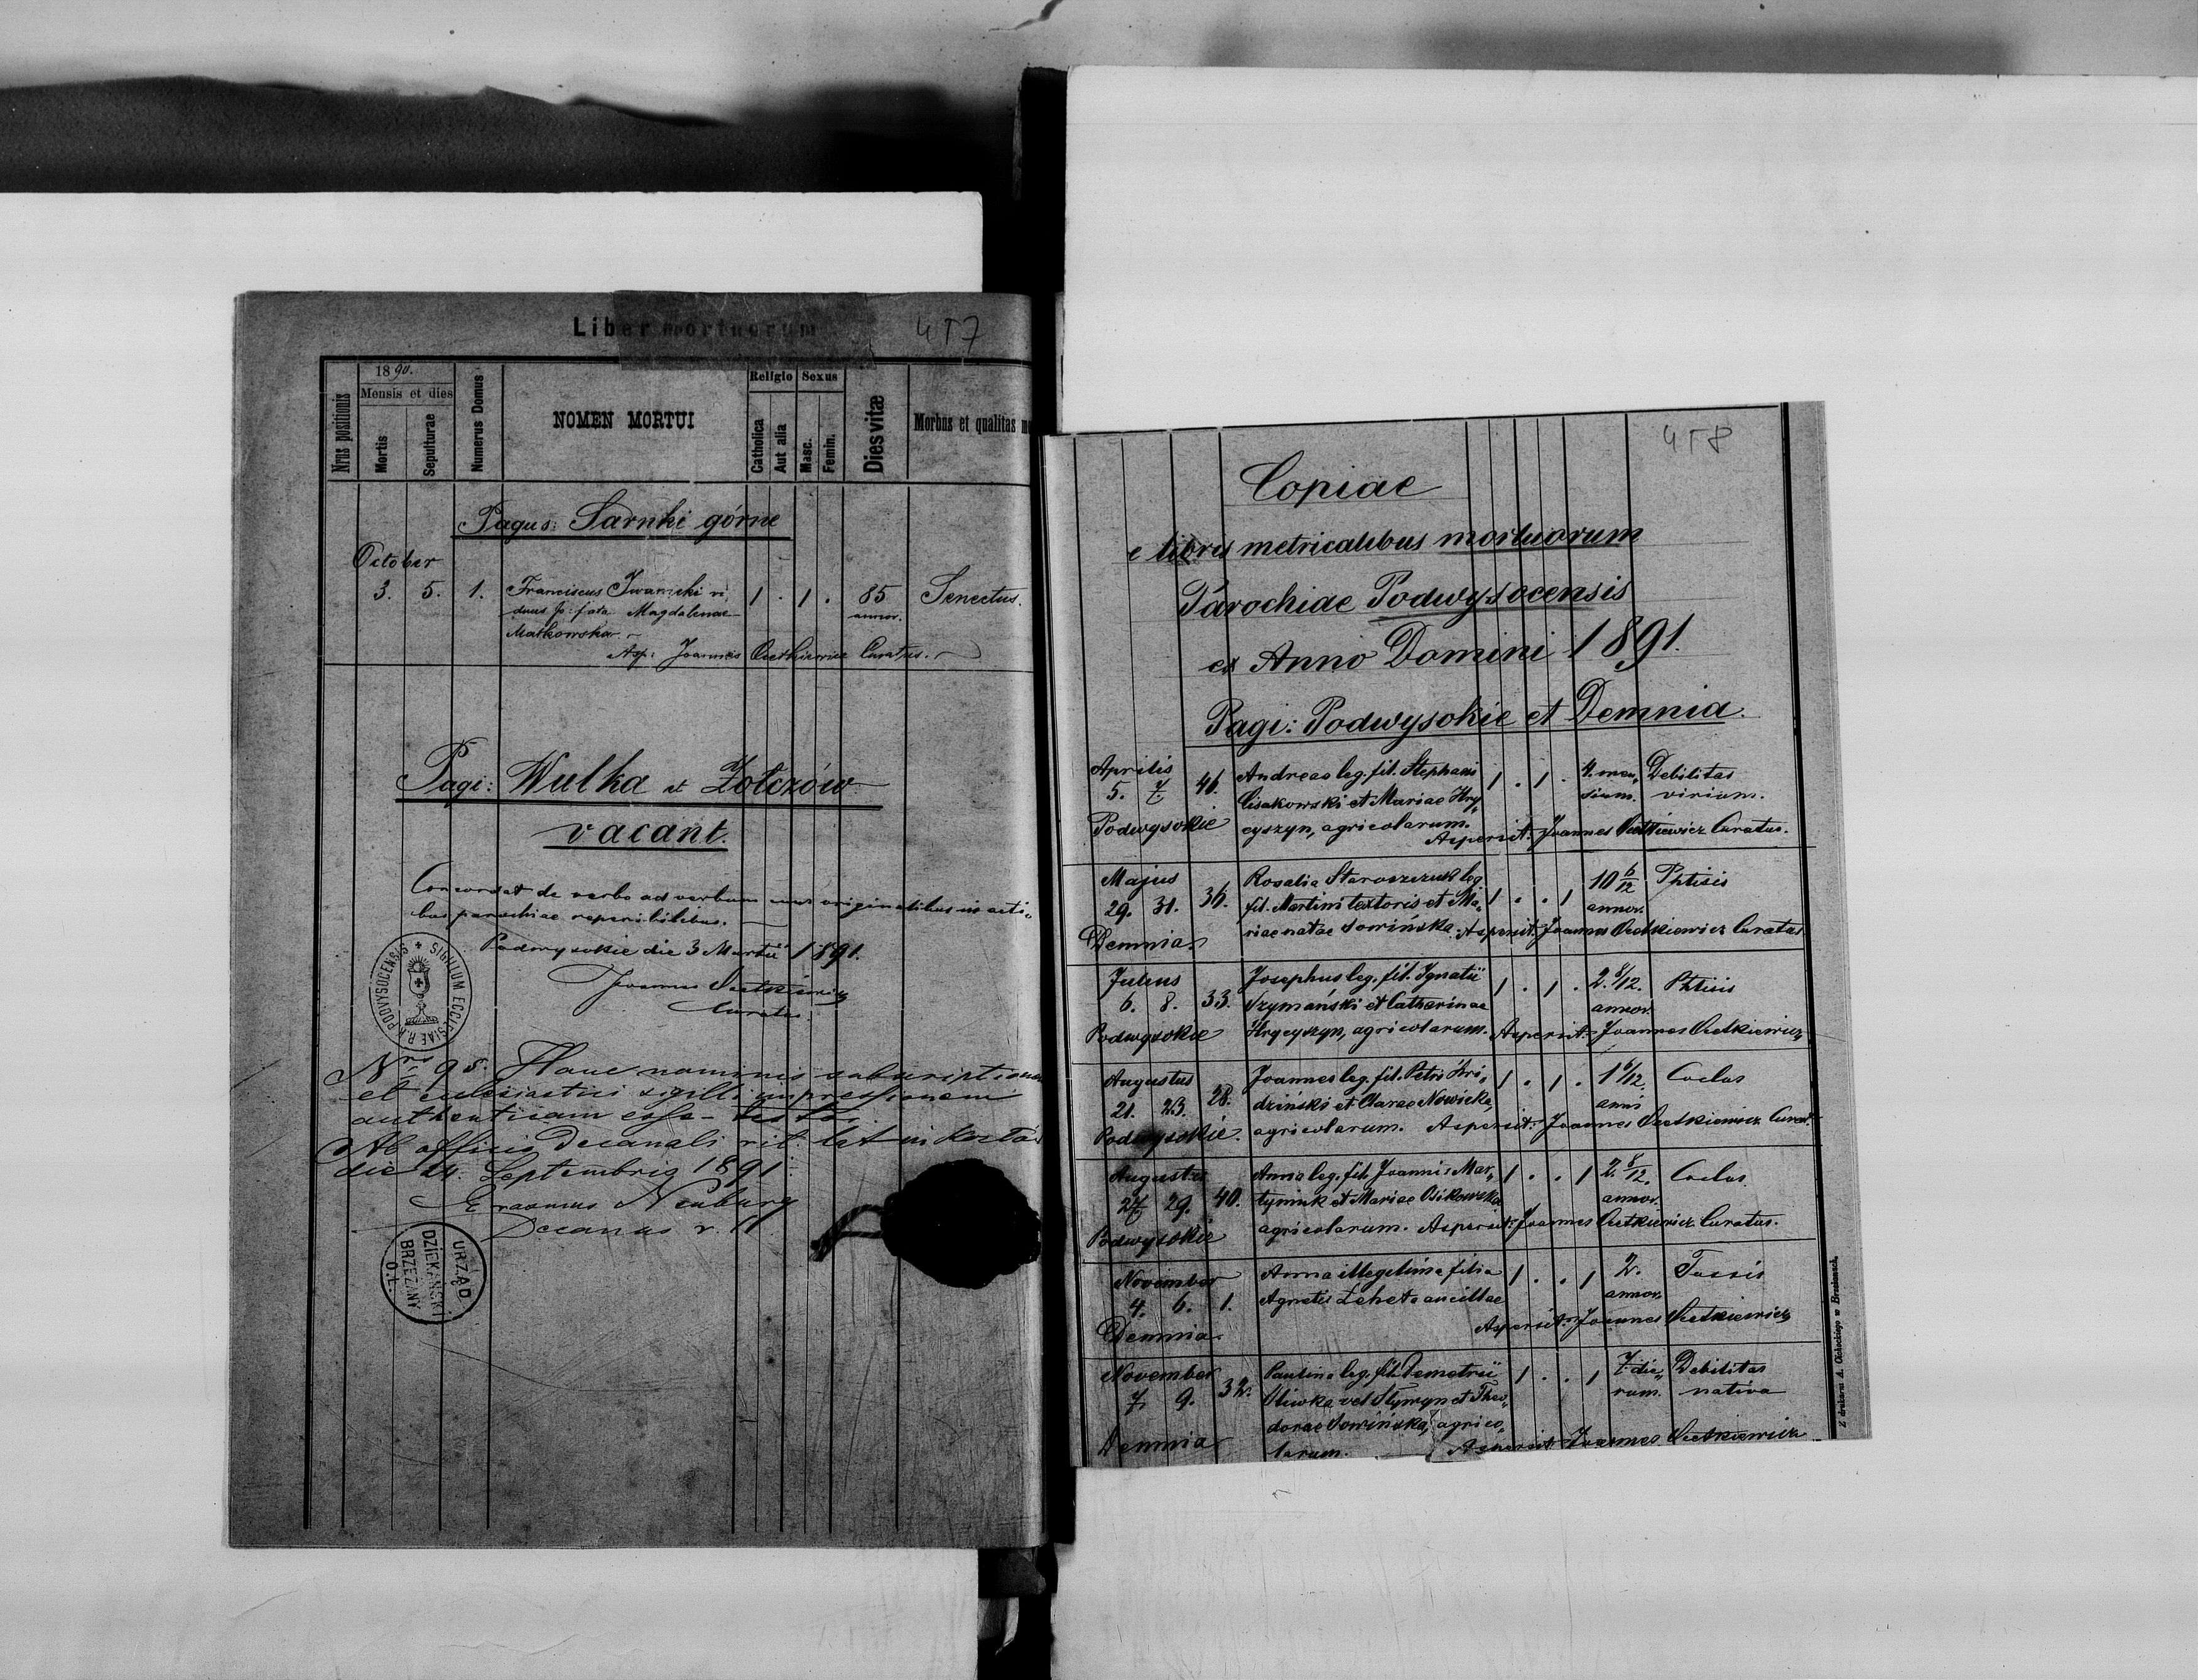 Liber mortuorum
4T7
1890.
Nrus positionis
Mensis et dies
Mortis
Sepulturae
Numerus Domus
NOMEN MORTUI
Religio
Catholica
Aut alia
Sexus
Masc.
Femin.
Dies vitæ
Morbus et qualitas m
Pagus: Sarnki górne
October
3. 5. 1. Franciscus Iwanicki vi- 1 . 1 . 85 Senectus.
duus p: fata Magdalenae annor.
Matkowska
Asp: Joannes Curatus.
Pagi: Wulka et Żołczów
vacant.
Concordat de verbo ad verbum cum originalibus in acti-
bus parochiae reperibilibus.
Podwysokie die 3 Martii 1891.
Joannes
Curatus.
SIGILLUM ECCLESIAE R. L. PODVYSOCENSIS
Nrus 98. Hanc nominis subscriptionem
et ecclesiastici sigilli impressionem
authenticam esse testor.
Ab officio Decanali rit. lat.
die 24. Septembris 1891.
Erasmus Neuburg
Decanus
URZĄD
DZIEKAŃSKI
BRZEŻANY
O.Ł.
4T8
Copiae
e libris metricalibus mortuorum
Parochiae Podwysocensis
ex Anno Domini 1891.
Pagi: Podwysokie et Demnia.
Aprilis Andreas leg. fil. Stephani 1 . 1 . 4. men- Debilitas
5. 7. 46. Lisakowski et Mariae Hry- sium. virium.
Podwysokie cyszyn, agricolarum.
Aspersit: Joannes Curatus.
Majus Rosalia Staroszczuk leg. 1 . . 1 10 6/12 Phtisis
29. 31. 36. fil. Martini textoris et Ma- annor.
Demnia riae natae Sowińska. Aspersit: Joannes Curatus
Julius Josephus leg. fil. Ignatii 1 . 1 . 2. 8/12. Phtisis
6. 8. 33. Szymański et Catharinae annor.
Podwysokie Hrycyszyn, agricolarum. Aspersit: Joannes
Augustus Joannes leg. fil. Petri 1 . 1 . 1 6/12.
21. 23. 28. et Clarae Nowicka, anni
Podwysokie. agricolarum. Aspersit: Joannes Curat.
Augusti Anna leg. fil. Joannis Mar- 1 . . 1 2. 8/12.
27. 29. 40. tyniuk et Mariae annor.
Podwysokie agricolarum. Aspersit: Joannes Curatus.
November Anna illegitima filia 1 . . 1 2. Tussis
4. 6. 1. Agnetis ancillae annor.
Demnia Aspersit: Joannes
November Paulina leg. fil. Demetrii 1 . . 1 7. die- Debilitas
7. 9. 32. vel et Theo- rum. nativa
dorae Sowińska, agrico-
Demnia larum. Aspersit: Joannes
Z drukarni A. Cichockiego w Brzeżanach.